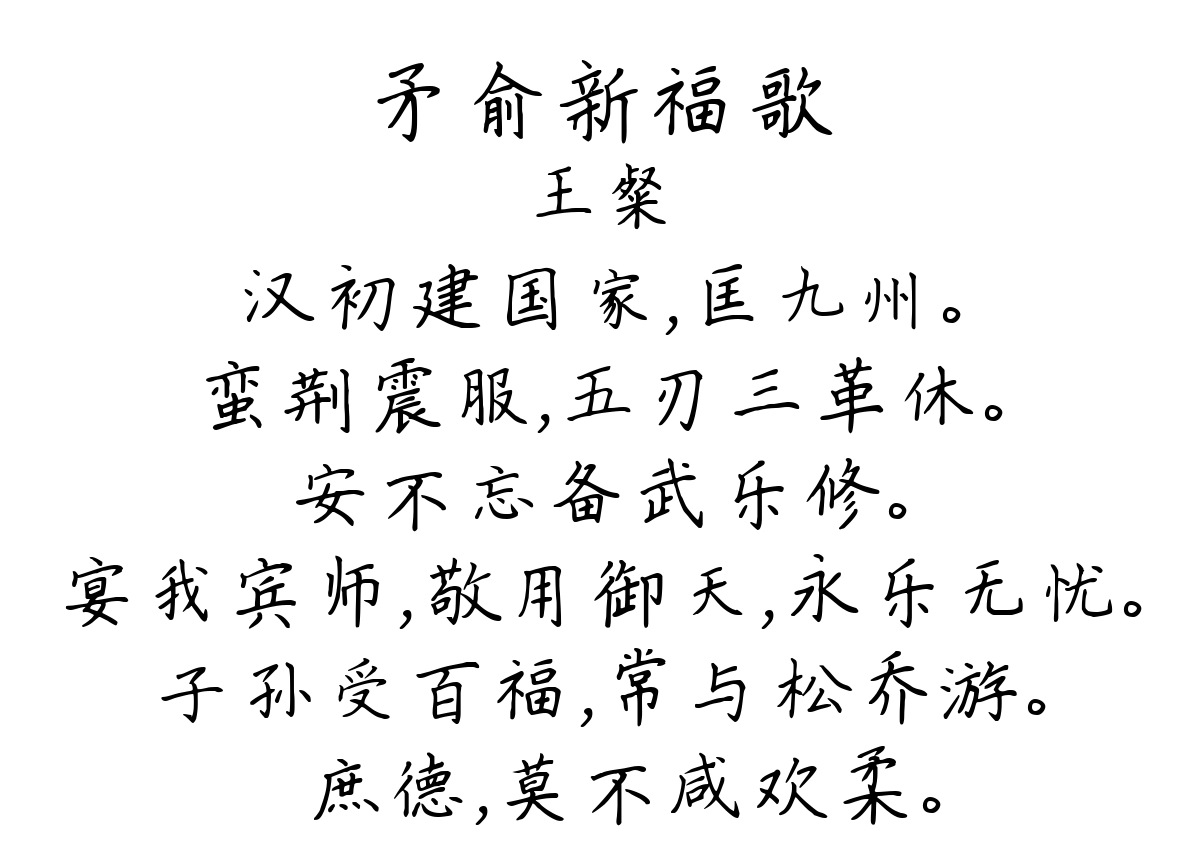 矛俞新福歌
王粲
汉初建国家,匡九州。
蛮荆震服,五刃三革休。
安不忘备武乐修。
宴我宾师,敬用御天,永乐无忧。
子孙受百福,常与松乔游。
庶德,莫不咸欢柔。